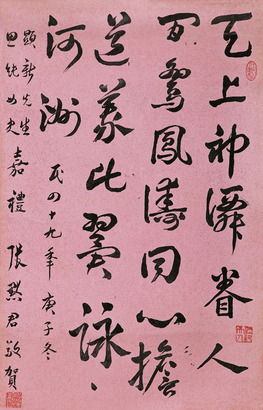 天上神僊眷人
間鴛鳳儔同心擔
道義比翼詠
河洲
民四十九年庚子冬
顯新先生
思純女史
嘉禮 張默君敬賀